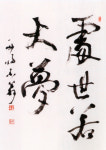 處世若
大夢